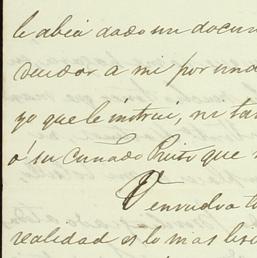 le abia dado un docum
deudor a mi por una
yo que le instrui, ni ta
ó su cuñado Pinto que
Venuelva t
realidad es lo mas bis